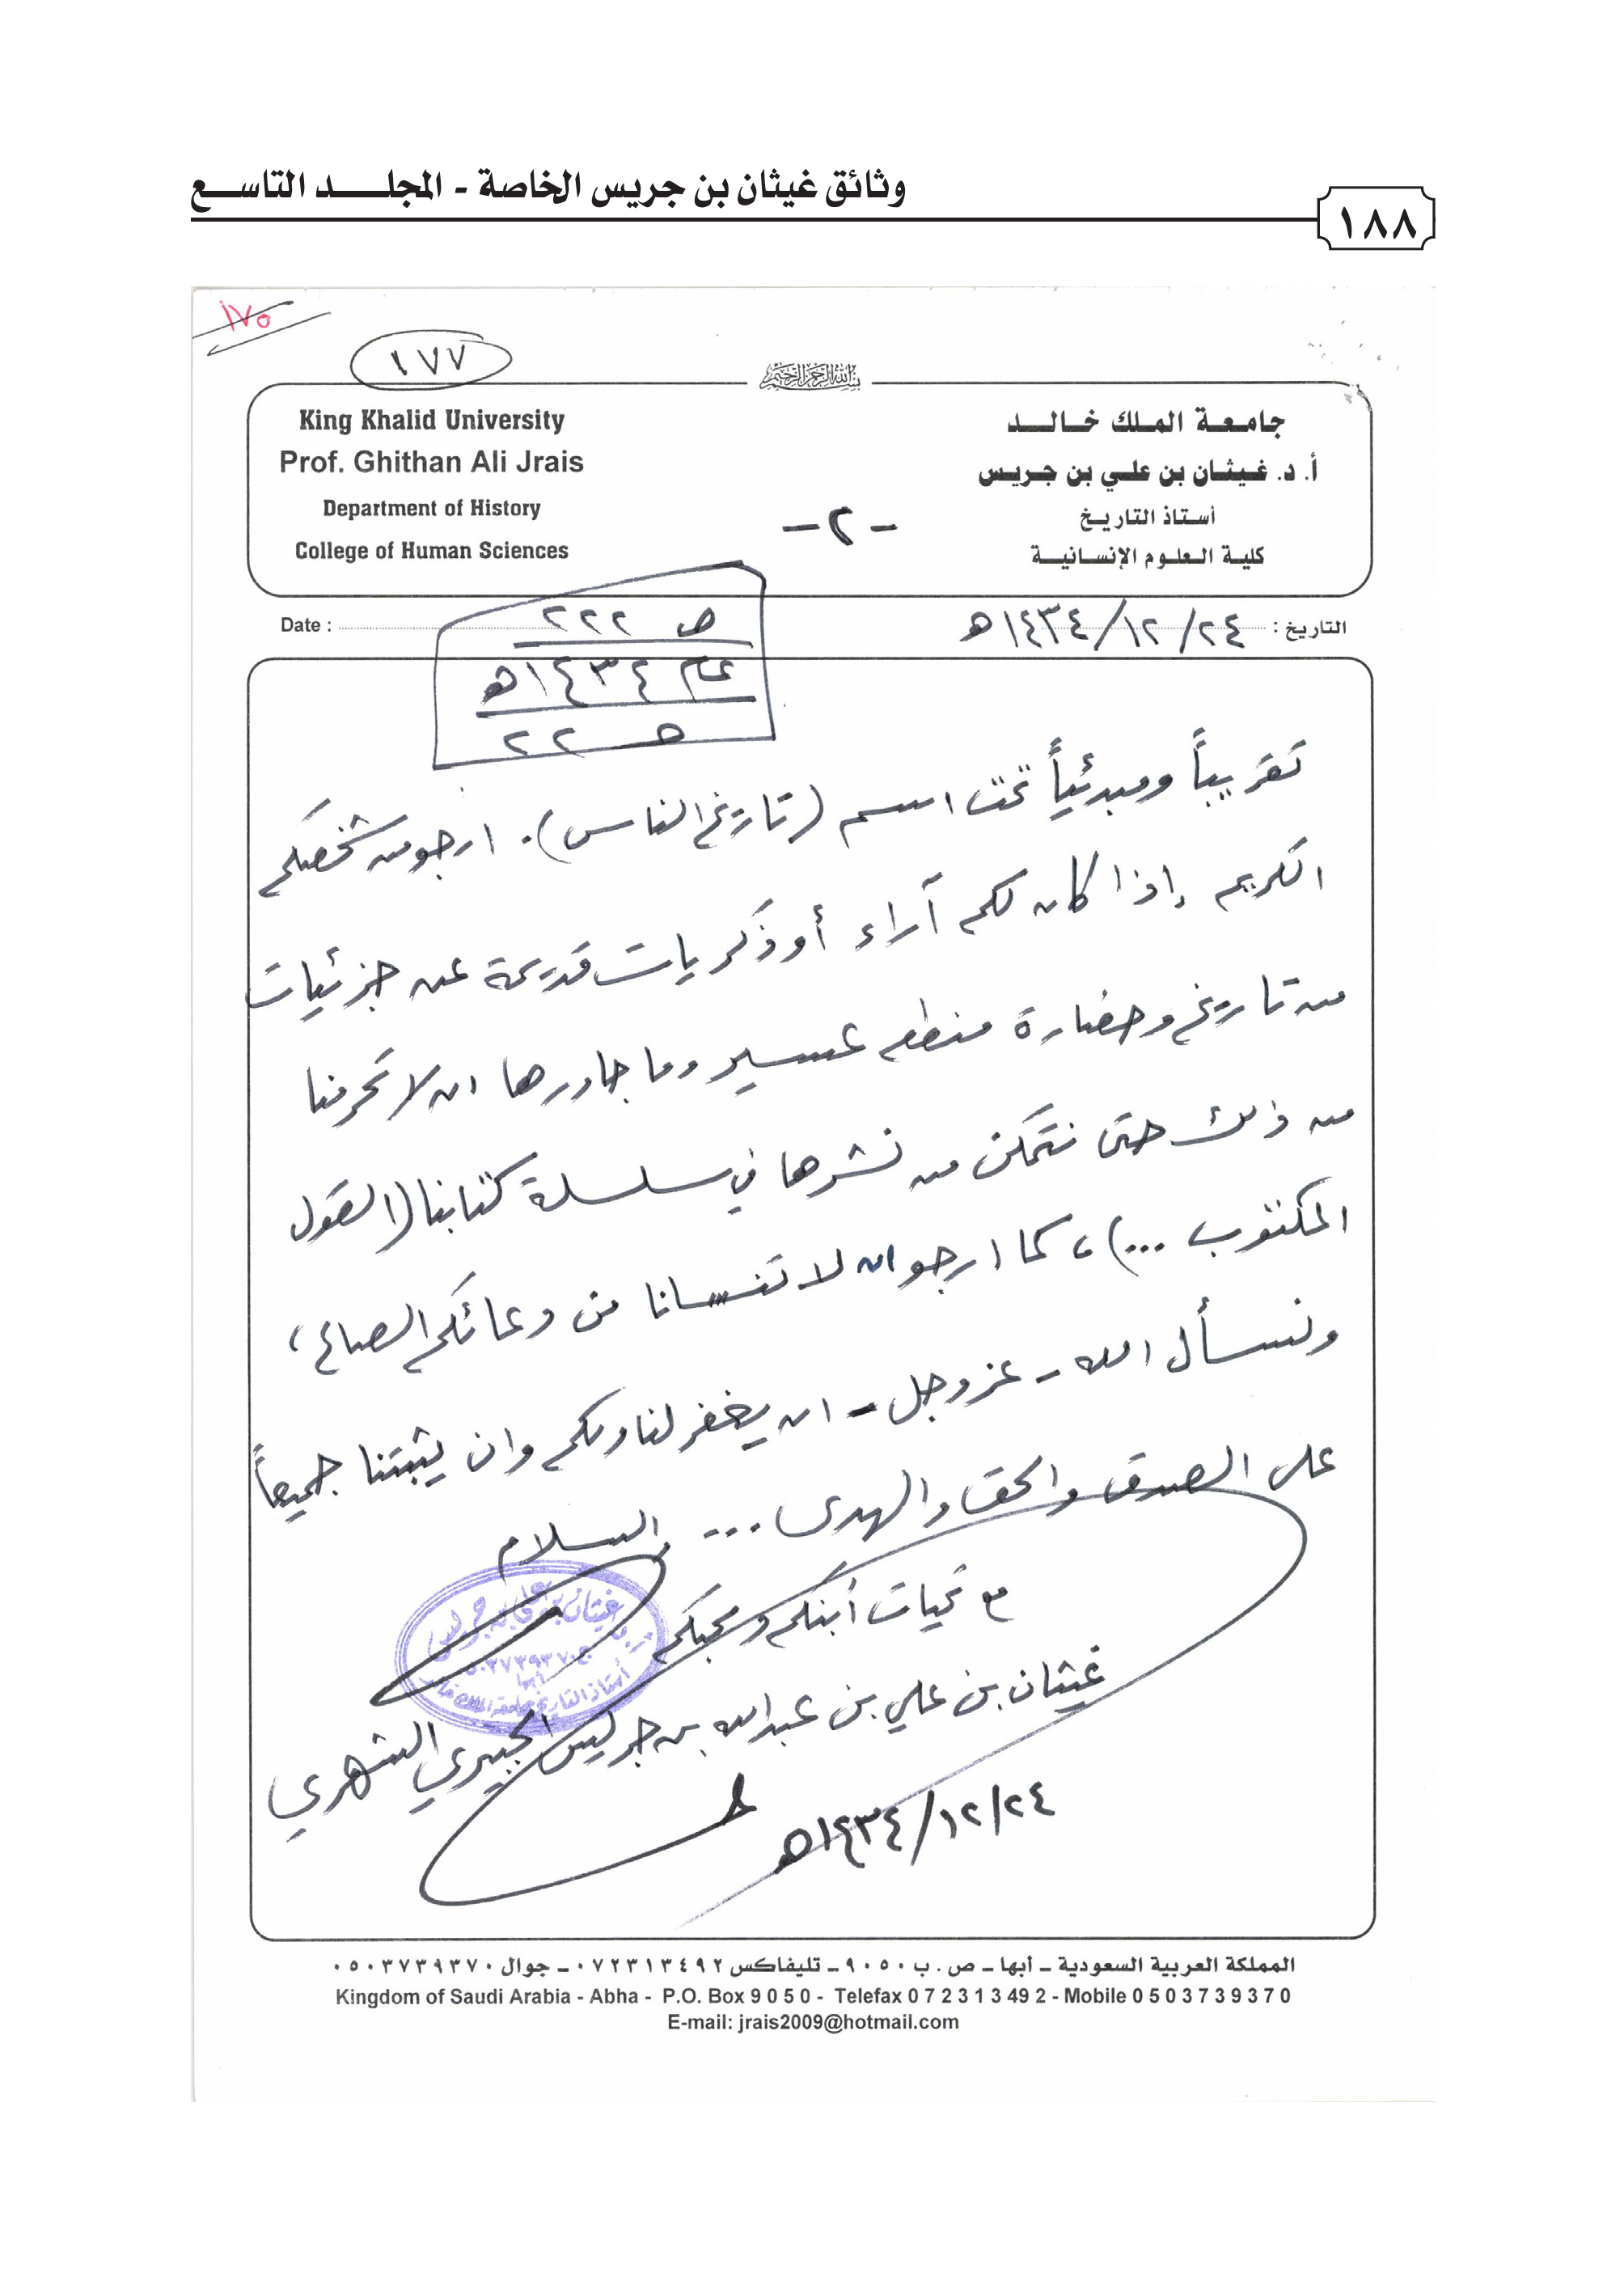 وثائق غيثان بن جريس الخاصة - المجلد التاسع
١٨٨
١٧٥
١٧٧
بسم الله الرحمن الرحيم
King Khalid University
Prof. Ghithan Ali Jrais
Department of History
College of Human Sciences
جامعة الملك خالد
أ. د. غيثان بن علي بن جريس
أستاذ التاريخ
كلية العلوم الإنسانية
- ٢ -
Date :
التاريخ : ٢٤/ ١٢/ ١٤٣٤هـ
ص ٢٢٢
عام ١٤٣٤هـ
حـ ٢٢
تقريباً ومبدئياً تحت اسم (تاريخ الناس). ارجو من شخصكم
الكريم إذا كان لكم آراء أو ذكريات قديمة عن جزئيات
من تاريخ وحضارة منطقة عسير وما جاورها ان لا تحرمنا
من ذلك حتى نتمكن من نشرها في سلسلة كتابنا (القول
المكتوب ...)، كما ارجو ان لا تنسانا من دعائكم الصالح،
ونسأل الله - عز وجل - ان يغفر لنا ولكم وان يثبتنا جميعاً
على الصدق والحق والهدى ... والسلام
مع تحيات أبنكم ومحبكم
غيثان بن علي بن عبدالله بن جريس الجبيري الشهري
٢٤/ ١٢/ ١٤٣٤هـ
المملكة العربية السعودية - أبها - ص . ب ٩٠٥٠ - تليفاكس ٠٧٢٣١٣٤٩٢ - جوال ٠٥٠٣٧٣٩٣٧٠
Kingdom of Saudi Arabia - Abha - P.O. Box 9 0 5 0 - Telefax 0 7 2 3 1 3 49 2 - Mobile 0 5 0 3 7 3 9 3 7 0
E-mail: jrais2009@hotmail.com